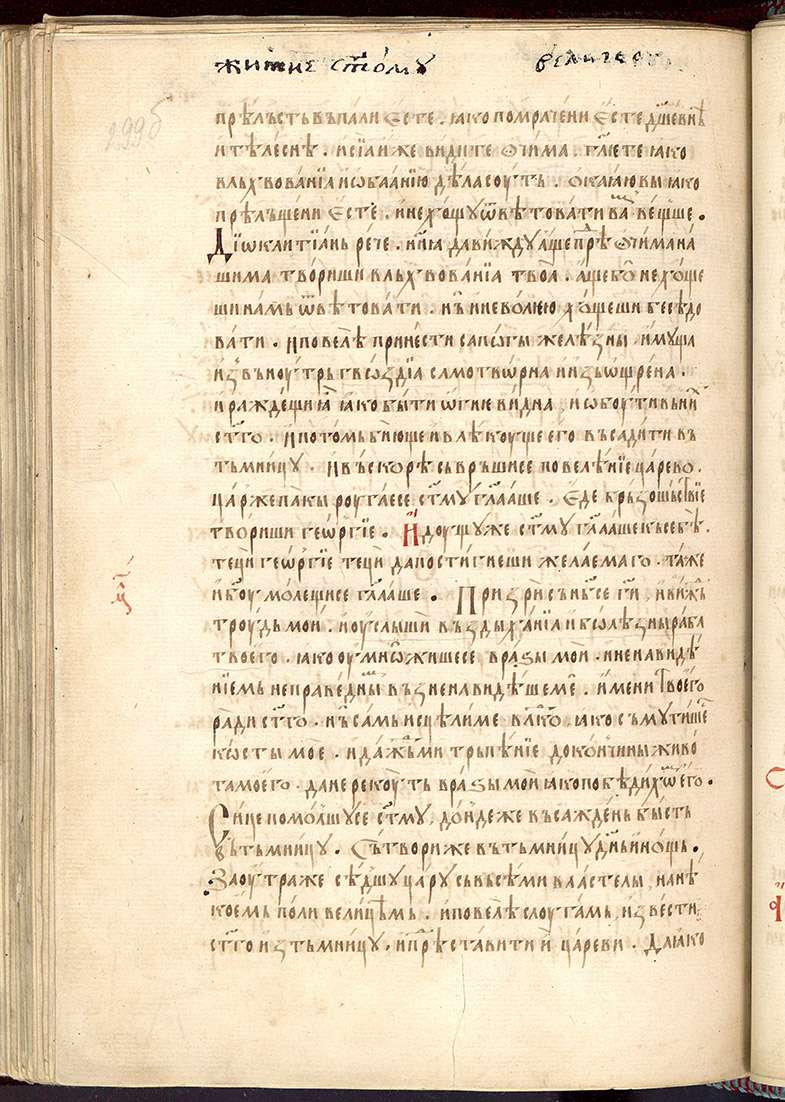 житие ст҃омꙋ
299б
прѣльсть въпали есте . ꙗко помрачени есте дш҃евнѣ
и тѣлеснѣ . и сїа иже видите ѻчима . гл҃ете ꙗко
вльхвованїа и ѡбаанїю дѣла соуть . ѻкааю вы ꙗко
прѣльщени есте . и не хощꙋ ѿвѣтовати ва веще .
Дїѡклитїань рече . нн҃ꙗ да вижду аще прѣ ѻчима на
шима твориши вльхвованїа твоа . аще бо не хоще
ши намь ѿвѣтовати . нь и неволею хощеши бесѣдо
вати . И повелѣ принести сапѡгы желѣзны имꙋща
извьноутрь гвѡздїа самотвѡрна и изьѡщрена .
и раждещи ꙗ ꙗко быти ѡгневидна , и ѡбоути
ст҃го . И потомь бїюще и влѣкоуще его въсадити въ
тьмницꙋ . И въскорѣ сьврьшисе повелѣнїе царево .
царь же пакы роугаесе ст҃мꙋ гл҃ааше . Еде
твориши геѡргїе . И доушꙋ же ст҃мꙋ гл҃ааше къ себѣ .
теци геѡргїе теци да постигнеши желаемаго . таже
и бо҃у молещисе гл҃ааше . Призри съ нб҃се ги҃ , и вижь
троудь мои . и оуслыши въздыханїа и бѡлѣзны раба
твоего . ꙗко оумнѡжишесе врази мои . и ненавидѣ
нїемь неправеднымь възненавидѣше ме . имени твоего
ради ст҃го . нь самь исцѣли ме влⷣко . ꙗко съмутише
кѡсты мое . и даждь ми трьпѣнїе до кончины живо
та моего . да не рекоуть врази мои ꙗко побѣдихѡм его .
Сице помолшꙋсе ст҃мꙋ , дондеже въсаждень бысть
въ тьмницꙋ . Сътвори же въ тьмницꙋ днь и нощь .
Заоутра же сѣдшꙋ царꙋ сь вьсѣми властелы , на нѣ
коемь поли велицѣмь . и повелѣ слоугамь извести
ст҃го из тьмницꙋ . и прѣставити и цареви . Да ꙗко